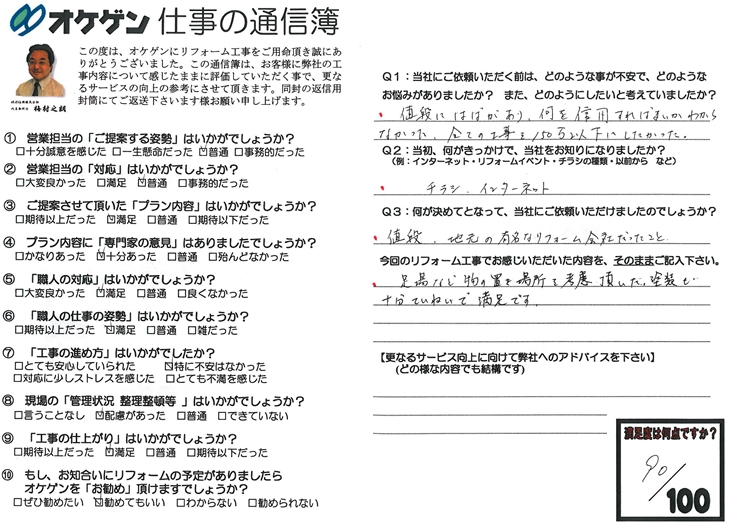 オケゲン 仕事の通信簿
この度は、オケゲンにリフォーム工事をご用命頂き誠にあ
りがとうございました。この通信簿は、お客様に弊社の工
事内容について感じたままに評価していただく事で、更な
るサービスの向上の参考にさせて頂きます。同封の返信用
封筒にてご返送下さいます様お願い申し上げます。
① 営業担当の「ご提案する姿勢」はいかがでしょうか?
□十分誠意を感じた □一生懸命だった ☑普通 □事務的だった
② 営業担当の「対応」はいかがでしょうか?
□大変良かった □満足 ☑普通 □事務的だった
③ ご提案させて頂いた「プラン内容」はいかがでしょうか?
□期待以上だった ☑満足 □普通 □期待以下だった
④ プラン内容に「専門家の意見」はありましたでしょうか?
□かなりあった ☑十分あった □普通 □殆んどなかった
⑤ 「職人の対応」はいかがでしょうか?
□大変良かった ☑満足 □普通 □良くなかった
⑥ 「職人の仕事の姿勢」はいかがでしょうか?
□期待以上だった ☑満足 □普通 □雑だった
⑦ 「工事の進め方」はいかがでしたか?
□とても安心していられた ☑特に不安はなかった
□対応に少しストレスを感じた □とても不満を感じた
⑧ 現場の「管理状況 整理整頓等 」はいかがでしょうか?
□言うことなし ☑配慮があった □普通 □できていない
⑨ 「工事の仕上がり」はいかがでしょうか?
□期待以上だった ☑満足 □普通 □期待以下だった
⑩ もし、お知合いにリフォームの予定がありましたら
オケゲンを「お勧め」頂けますでしょうか?
□ぜひ勧めたい ☑勧めてもいい □わからない □勧められない
Q1:当社にご依頼いただく前は、どのような事が不安で、どのような
お悩みがありましたか? また、どのようにしたいと考えていましたか?
値段にはばがあり、何を信用すればよいかわから
なかった、全ての工事を150万以下にしたかった。
Q2:当初、何がきっかけで、当社をお知りになりましたか?
(例:インターネット・リフォームイベント・チラシの種類・以前から など)
チラシ、インターネット
Q3:何が決めてとなって、当社にご依頼いただけましたのでしょうか?
値段、地元の有名なリフォーム会社だったこと
今回のリフォーム工事でお感じいただいた内容を、そのままご記入下さい。
足場など物の置き場所を考慮頂いた。塗装も
十分ていねいで満足です。
【更なるサービス向上に向けて弊社へのアドバイスを下さい】
(どの様な内容でも結構です)
満足度は何点ですか?
90/100